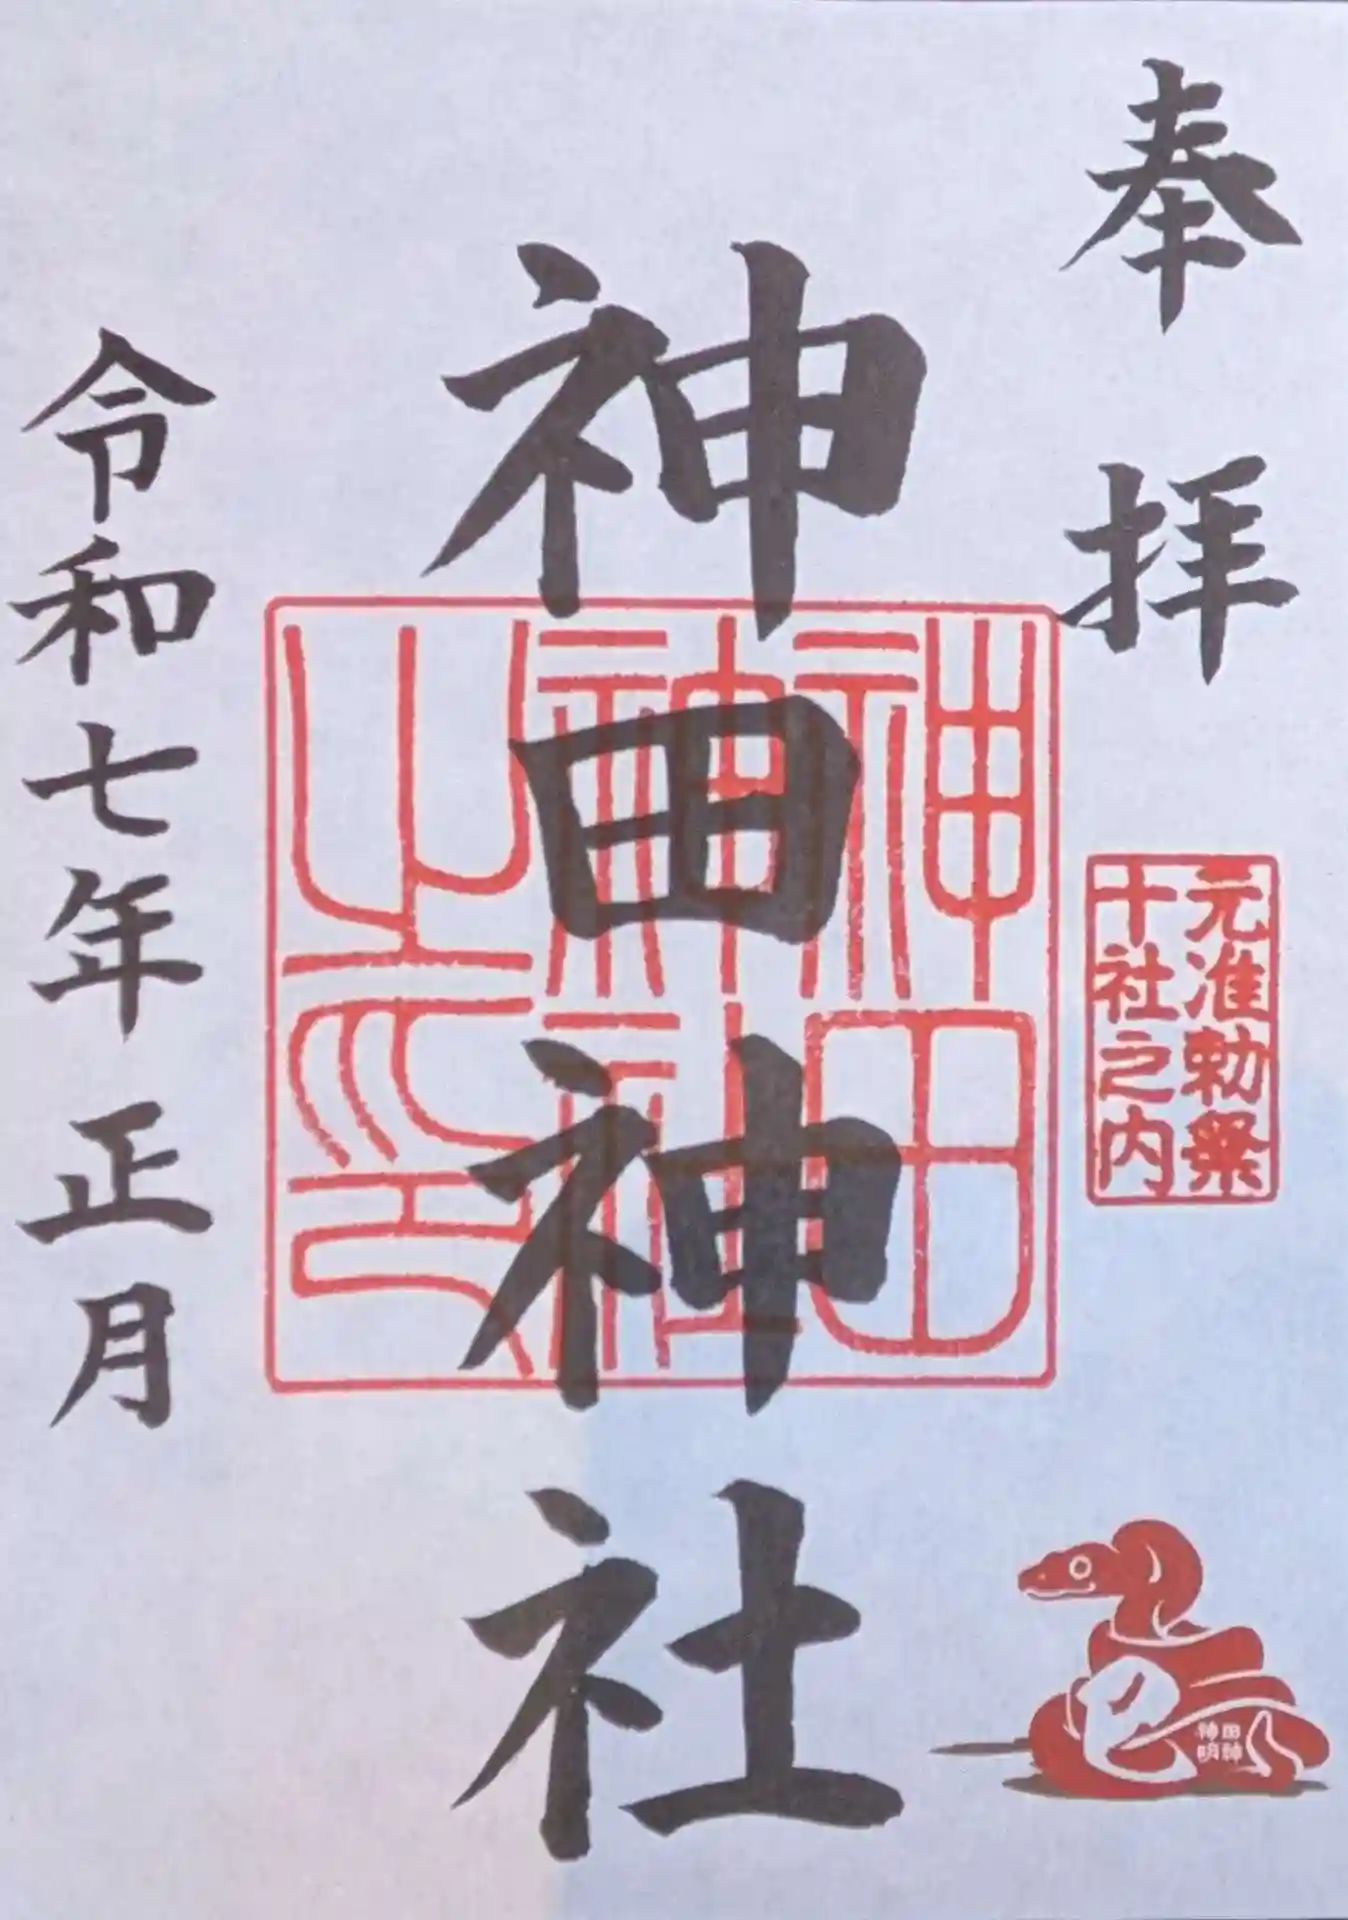 奉拝
元准勅祭
十社之内
巳
神田神明
神田神社
神田
神社
之印
令和七年正月